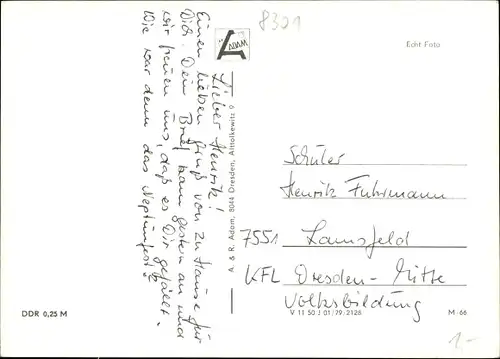 8301
ADAM
Echt Foto
Lieber Henrik!
Einen lieben Gruß von zu Hause für
Dich. Dein Brief kam gestern an und
wir freuen uns, daß es Dir gefällt.
Wie war denn das Neptunfest?
A. & R. Adam, 8044 Dresden, Alttolkewitz 9
Schüler
Henrik Fuhrmann
7551 Lamsfeld
KFL Dresden-Mitte
Volksbildung
DDR 0,25 M
V 11 50 J 01/79/2126
M 66
1,-